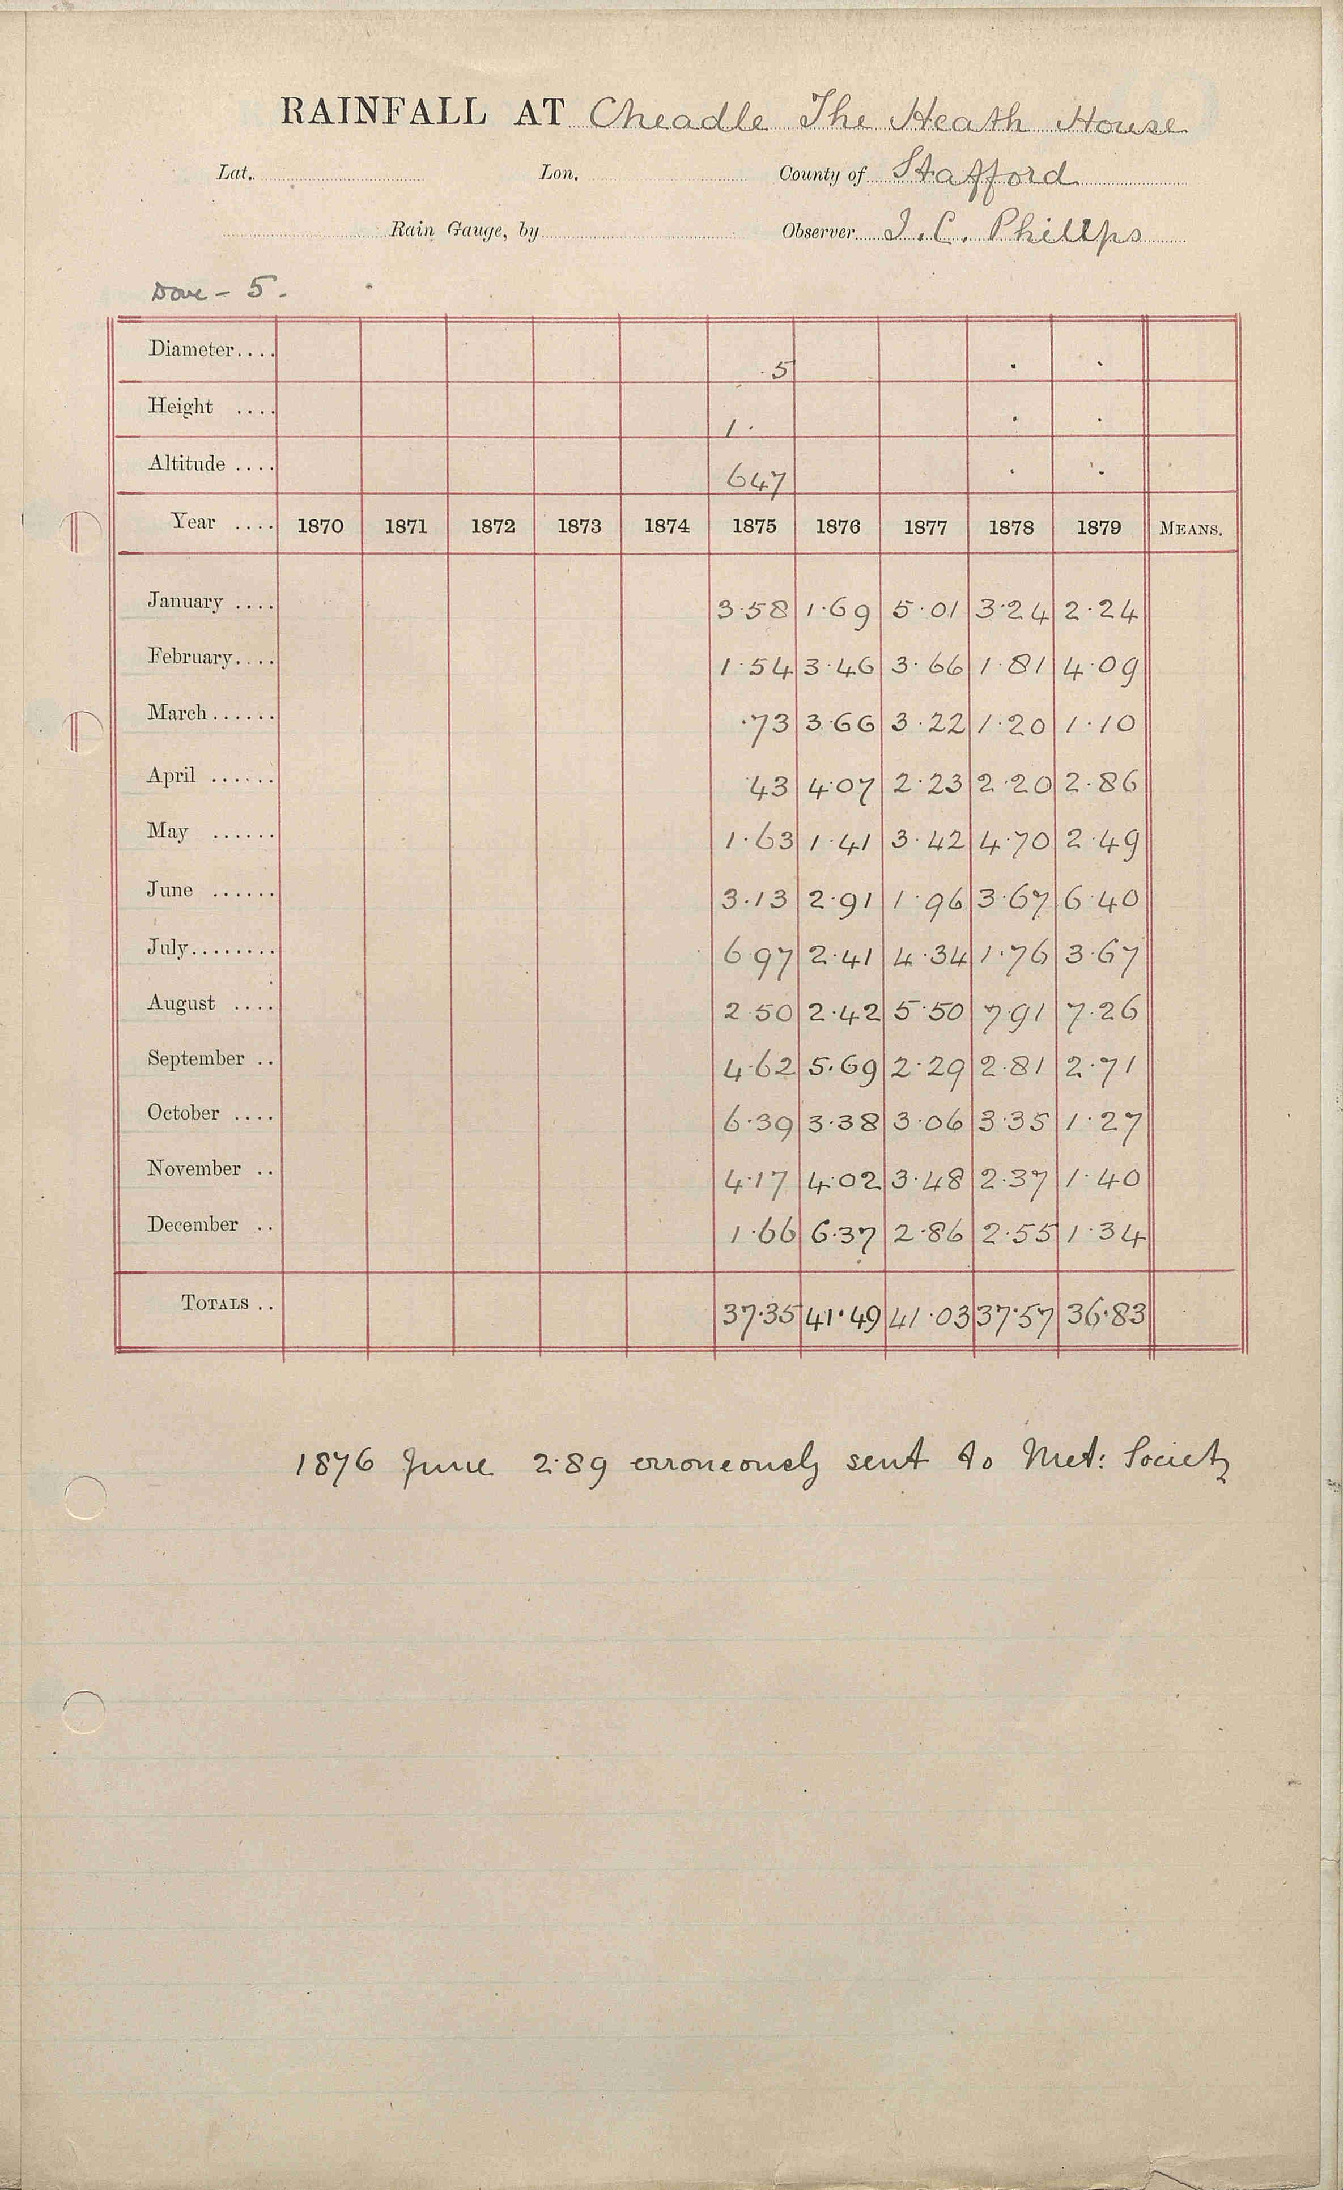 RAINFALL AT Cheadle The Heath House
Lat. Lon. County of Stafford
Rain Gauge, by Observer J. C. Phillips
Dove - 5.
Diameter.... 5
Height .... 1.
Altitude .... 647
Year .... 1870 1871 1872 1873 1874 1875 1876 1877 1878 1879 MEANS.
January .... 3.58 1.69 5.01 3.24 2.24
February.... 1.54 3.46 3.66 1.81 4.09
March...... .73 3.66 3.22 1.20 1.10
April ...... .43 4.07 2.23 2.20 2.86
May ...... 1.63 1.41 3.42 4.70 2.49
June ...... 3.13 2.91 1.96 3.67 6.40
July........ 6.97 2.41 4.34 1.76 3.67
August .... 2.50 2.42 5.50 7.91 7.26
September .. 4.62 5.69 2.29 2.81 2.71
October .... 6.39 3.38 3.06 3.35 1.27
November .. 4.17 4.02 3.48 2.37 1.40
December .. 1.66 6.37 2.86 2.55 1.34
TOTALS .. 37.35 41.49 41.03 37.57 36.83
1876 June 2.89 erroneously sent to Met: Society